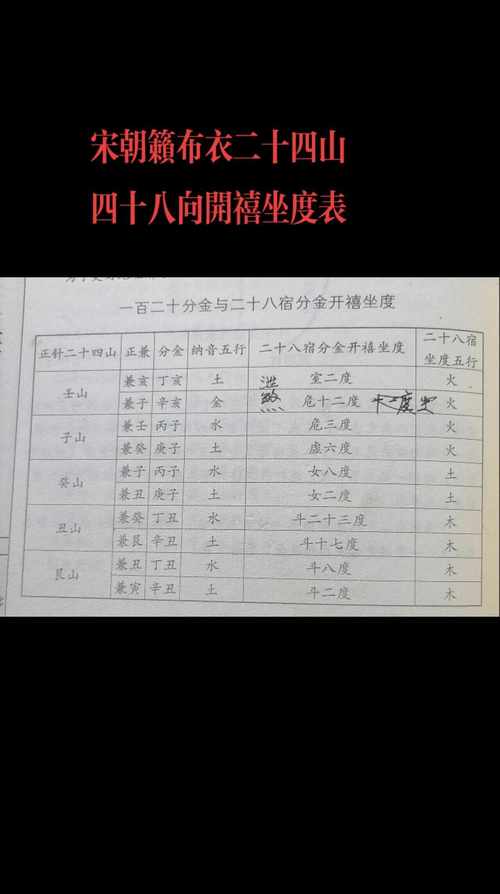 宋朝籟布衣二十四山
四十八向開禧坐度表
一百二十分金与二十八宿分金开禧坐度
正针二十四山 正兼 分金 纳音五行 二十八宿分金开禧坐度 二十八宿坐度五行
壬山 兼亥 丁亥 土 室二度 火
兼子 辛亥 金 煞 危十二度 度 火
子山 兼壬 丙子 水 危三度 火
兼癸 庚子 土 虚六度 火
癸山 兼子 丙子 水 女八度 土
兼丑 庚子 土 女二度 土
丑山 兼癸 丁丑 水 斗二十三度 木
兼艮 辛丑 土 斗十七度 木
艮山 兼丑 丁丑 水 斗八度 木
兼寅 辛丑 土 斗二度 木